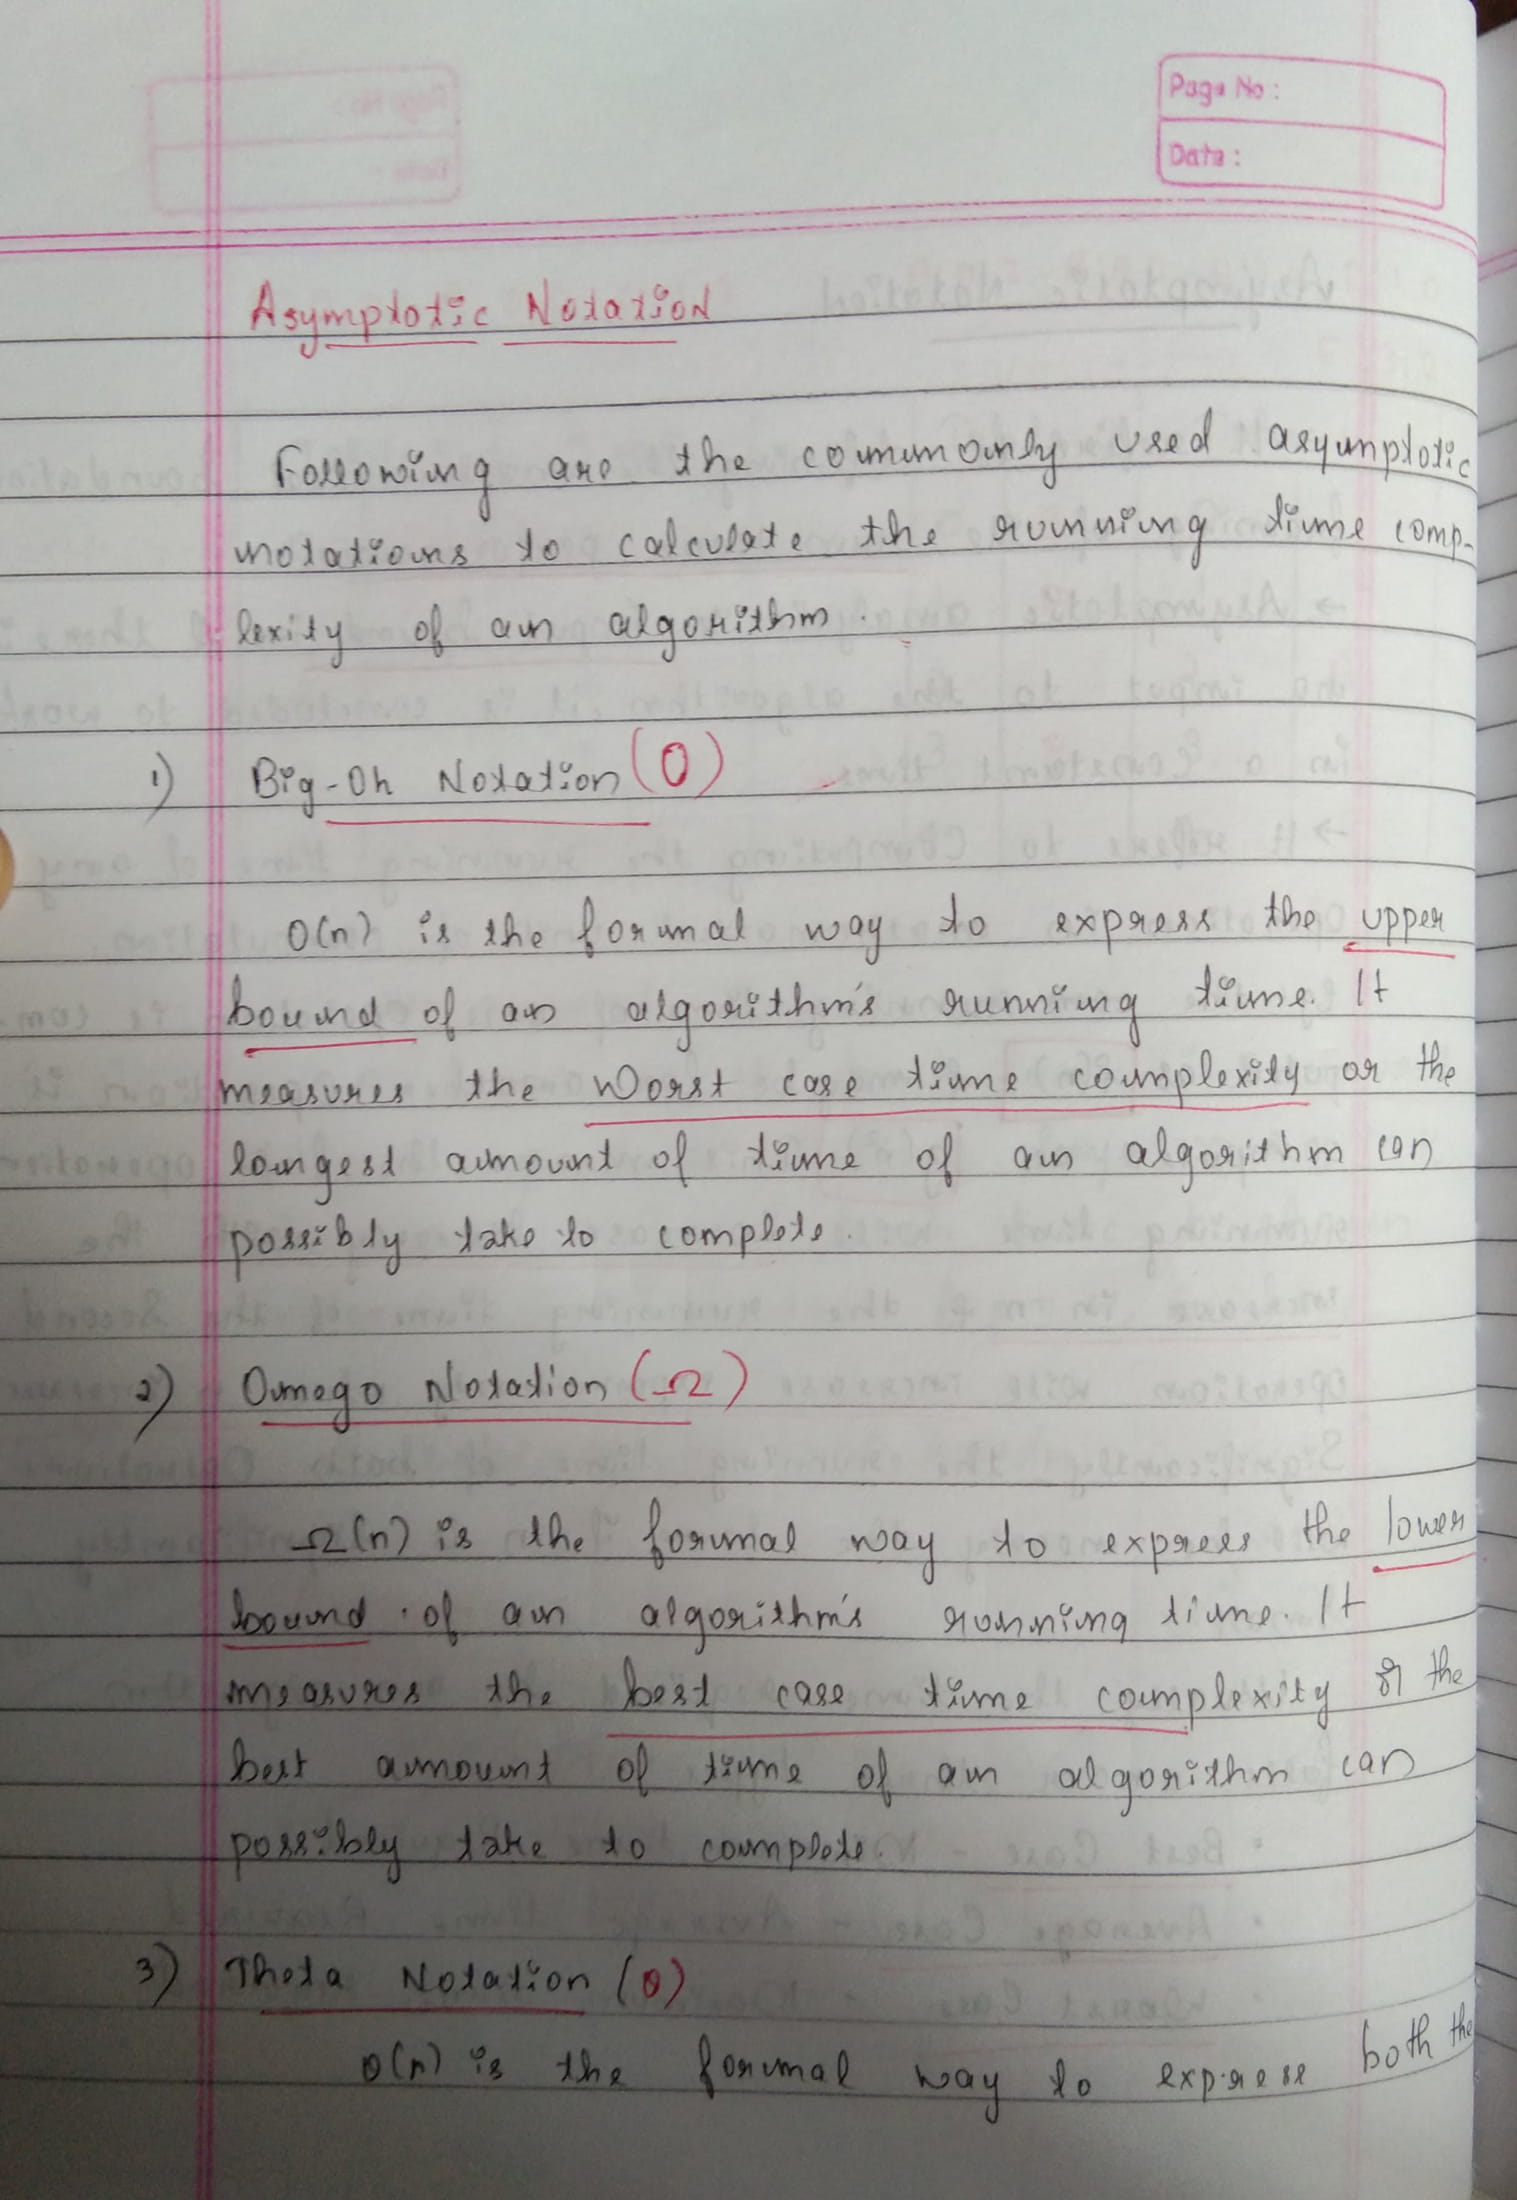 Page No :
Date :
Asymptotic Notation
Following are the commonly used asymptotic
notations to calculate the running time comp-
lexity of an algorithm.
1) Big-Oh Notation (O)
O(n) is the formal way to express the upper
bound of an algorithm's running time. It
measures the worst case time complexity or the
longest amount of time of an algorithm can
possibly take to complete.
2) Omega Notation (Ω)
Ω(n) is the formal way to express the lower
bound of an algorithm's running time. It
measures the best case time complexity or the
best amount of time of an algorithm can
possibly take to complete.
3) Theta Notation (θ)
θ(n) is the formal way to express both the